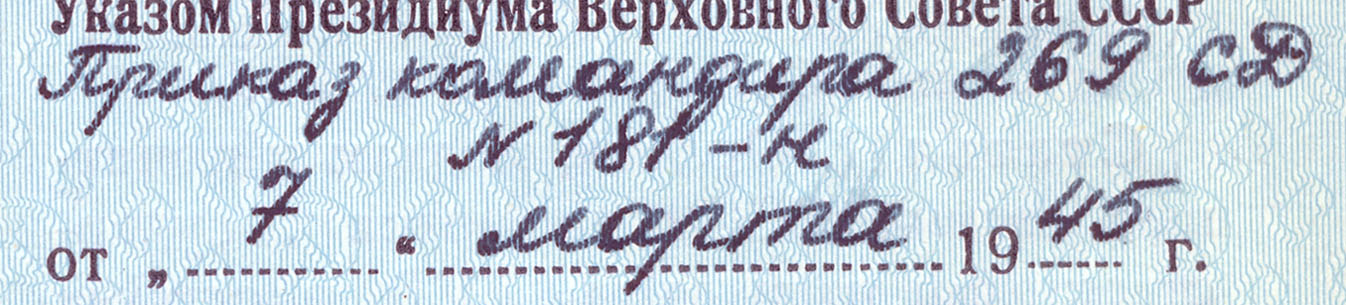 Указом Президиума Верховного Совета СССР
Приказ командира 269 СД
N 181-н
от „ 7 “ марта 1945 г.